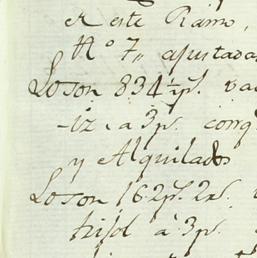 este Ramo,
N.º 7,, ajustada
Loson 834½ps.
iz. a 3ps.
y Alquilados
Loson 162ps. 2rs.
trisol à 3ps.